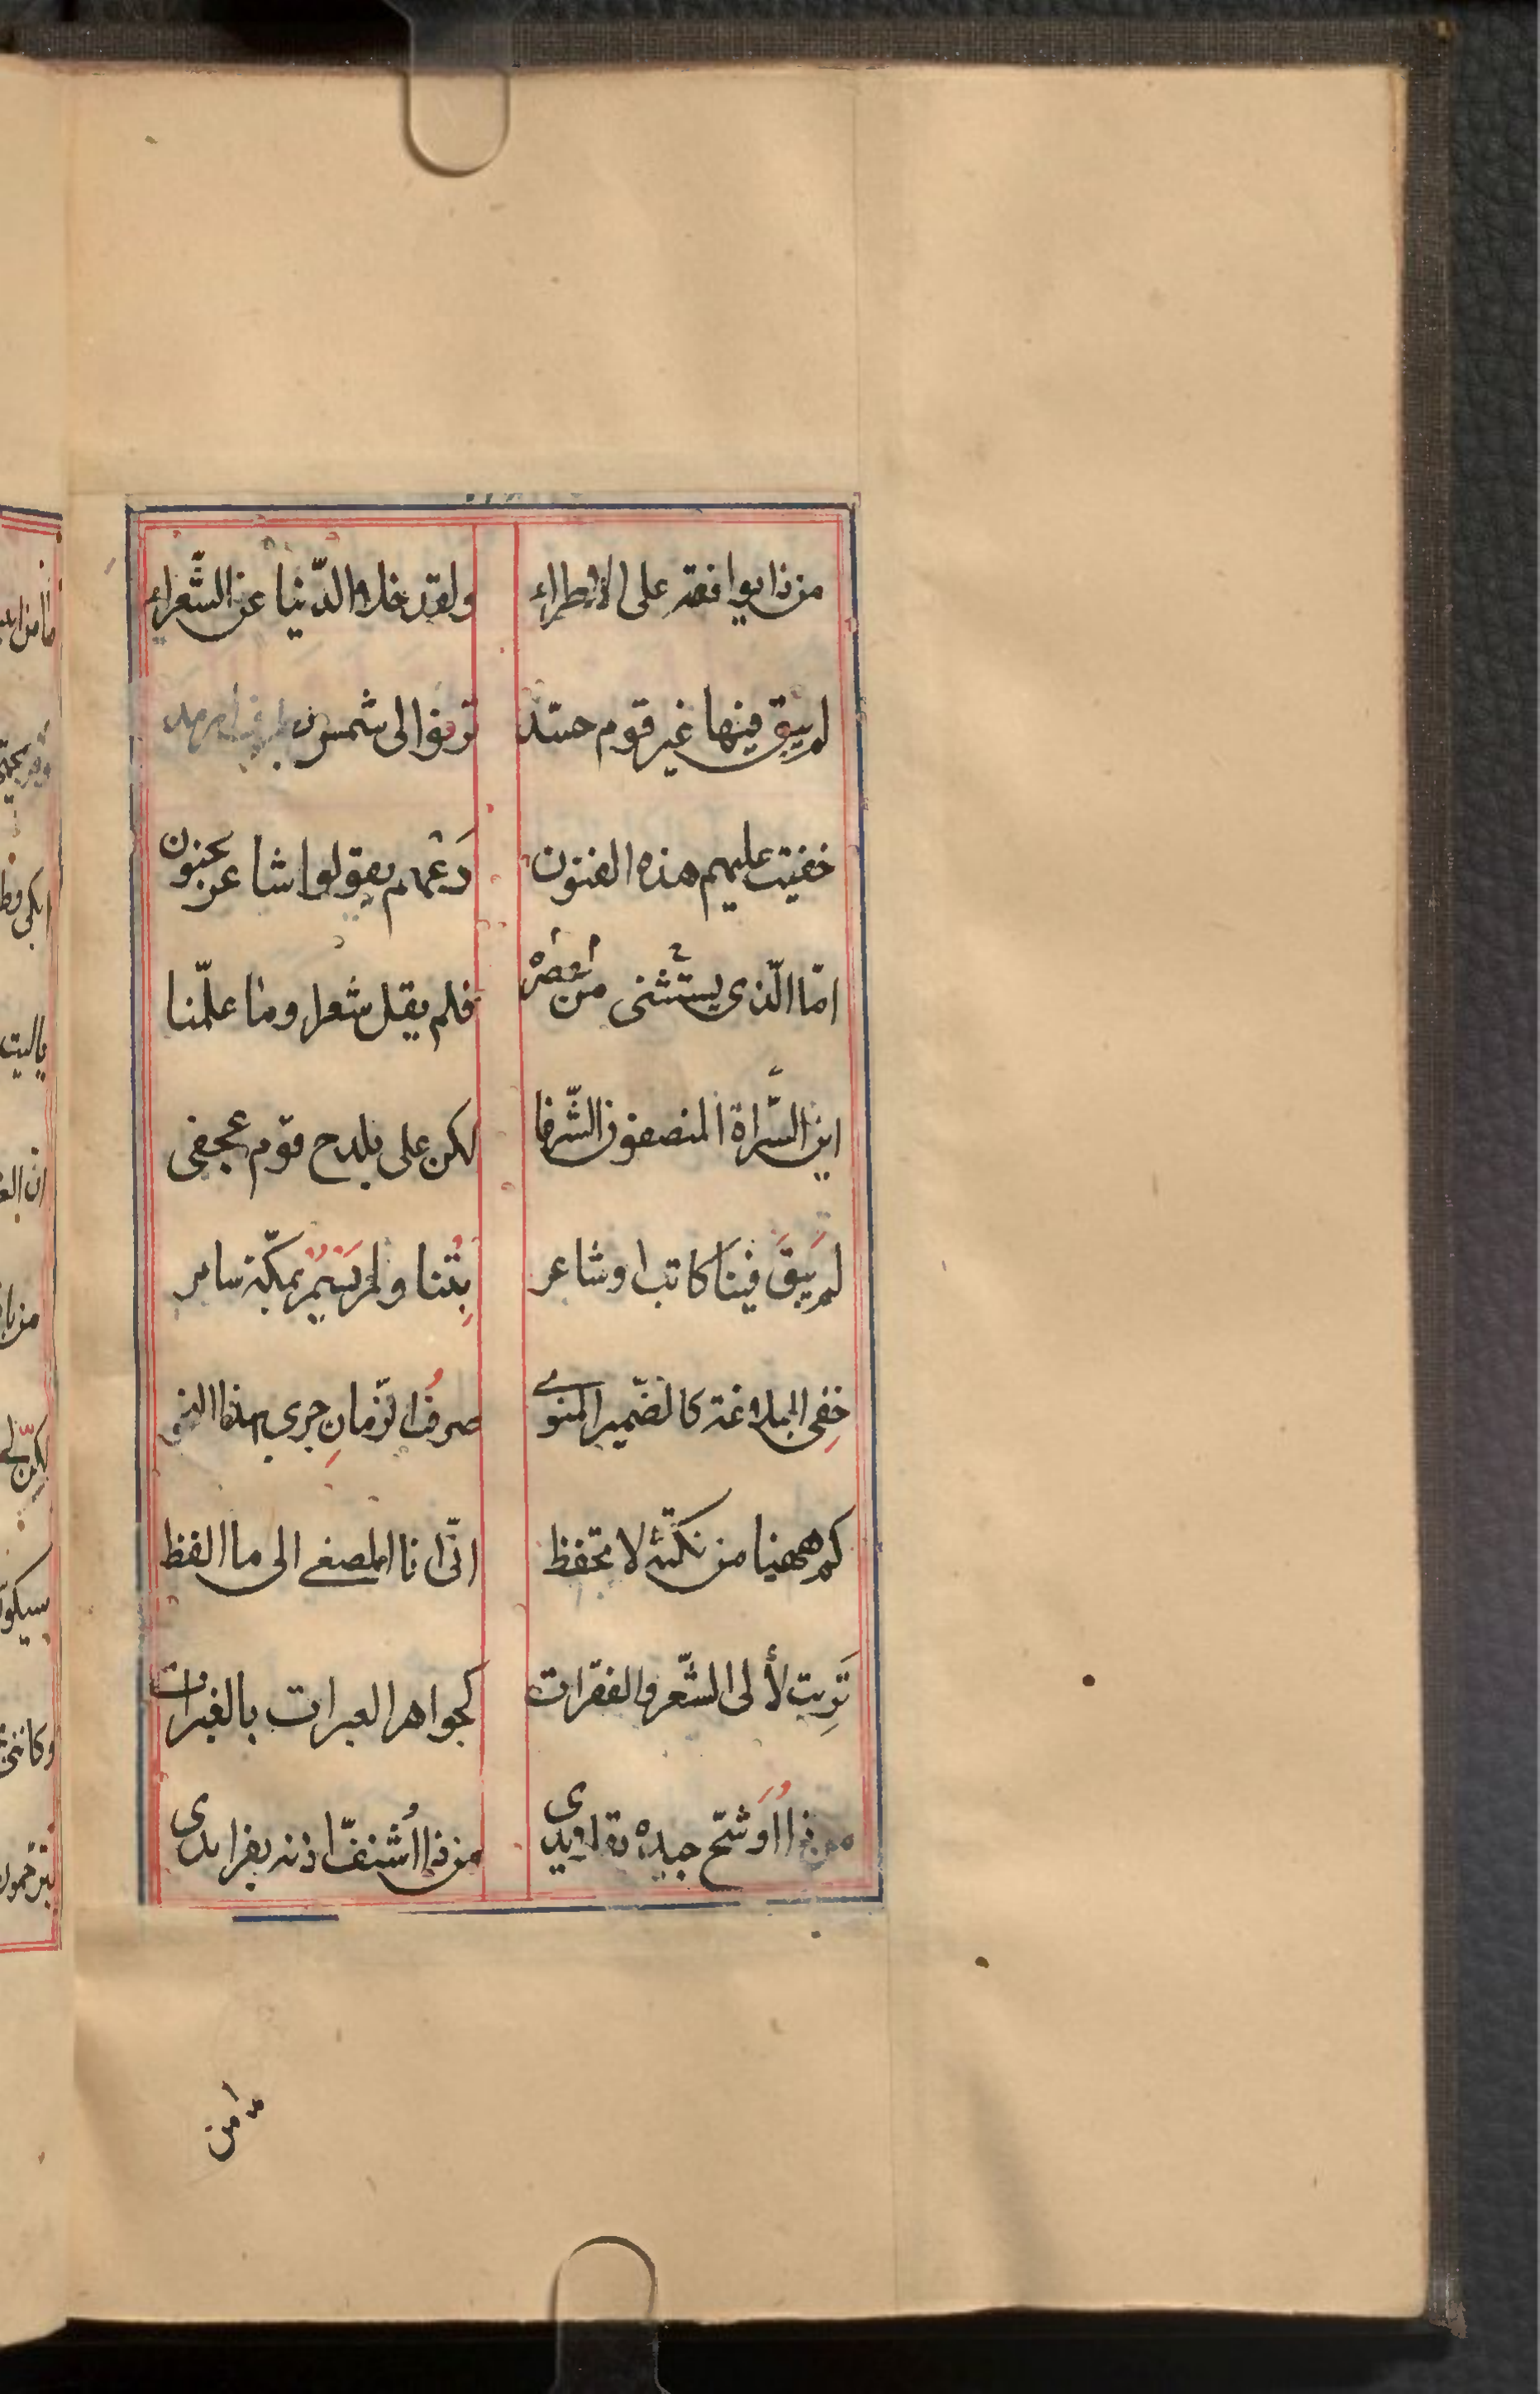 من ذا يوافقه على الاطراء ولقد خلا الدّنيا عن الشّعراء
لم يبق فيها غير قوم حسّد ترنوا الى شمس
خفيت عليهم هذه الفنون دَعْهم يقولوا شاعر مجنون
امّا الّذى يستثنى من فلم يقل شعرا وما علّمنا
اين السّراة المنصفون الشّرفا لكن على بلدح قوم عجفى
لم يَبقَ فينَا كاتب او شاعر بِتْنا ولم يَسْمُر بمكّة سامر
خفِى البلاغة كالضّمير المنوى صرفُ الزّمانِ جرى بهذا النحو
كم ههنا من نكتة لا تحفظ انّى انا المصغى الى ما الفظ
تَرِبت لألى الشّعر والفقرات كجواهر العبرات بالغبرات
من ذا اُوَشّح جيده بقلايدى من ذا اُشنفّ اذنه بفرايدى
من